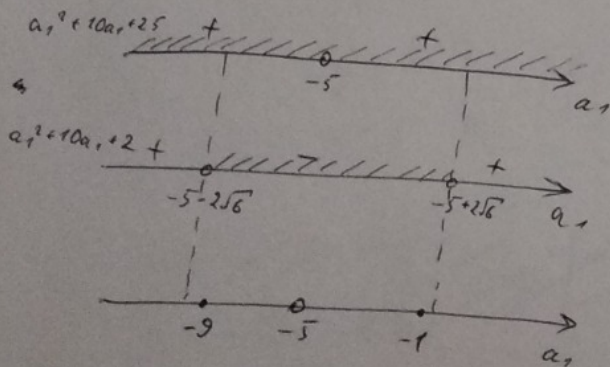 a₁² + 10a₁ + 25 + +
-5
a₁
a₁² + 10a₁ + 2 + - +
-5-2√6 -5+2√6
a₁
-9 -5 -1
a₁